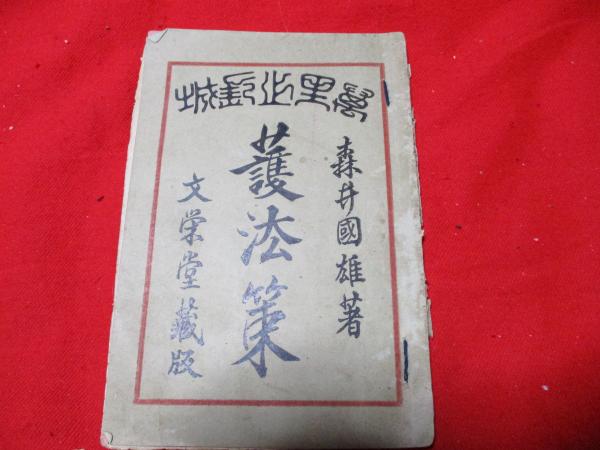 萬里之長城
森井國雄著
護法策
文栄堂藏版